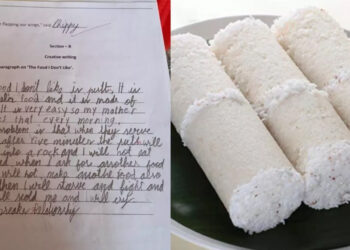 flapping our wings," said Chippy
Section - B
Creative writing
paragraph on 'The Food I Don't Like'.
I don't like is putt, It is
food and it is made of
it is very easy so my mother
that every morning.
problem is that when they serve
after five minutes the puttu will
into a rock and I will not eat
and when I ask for another food
will not make another food also
then I will starve and fight and
will scold me and I will cry.
breaks relationship